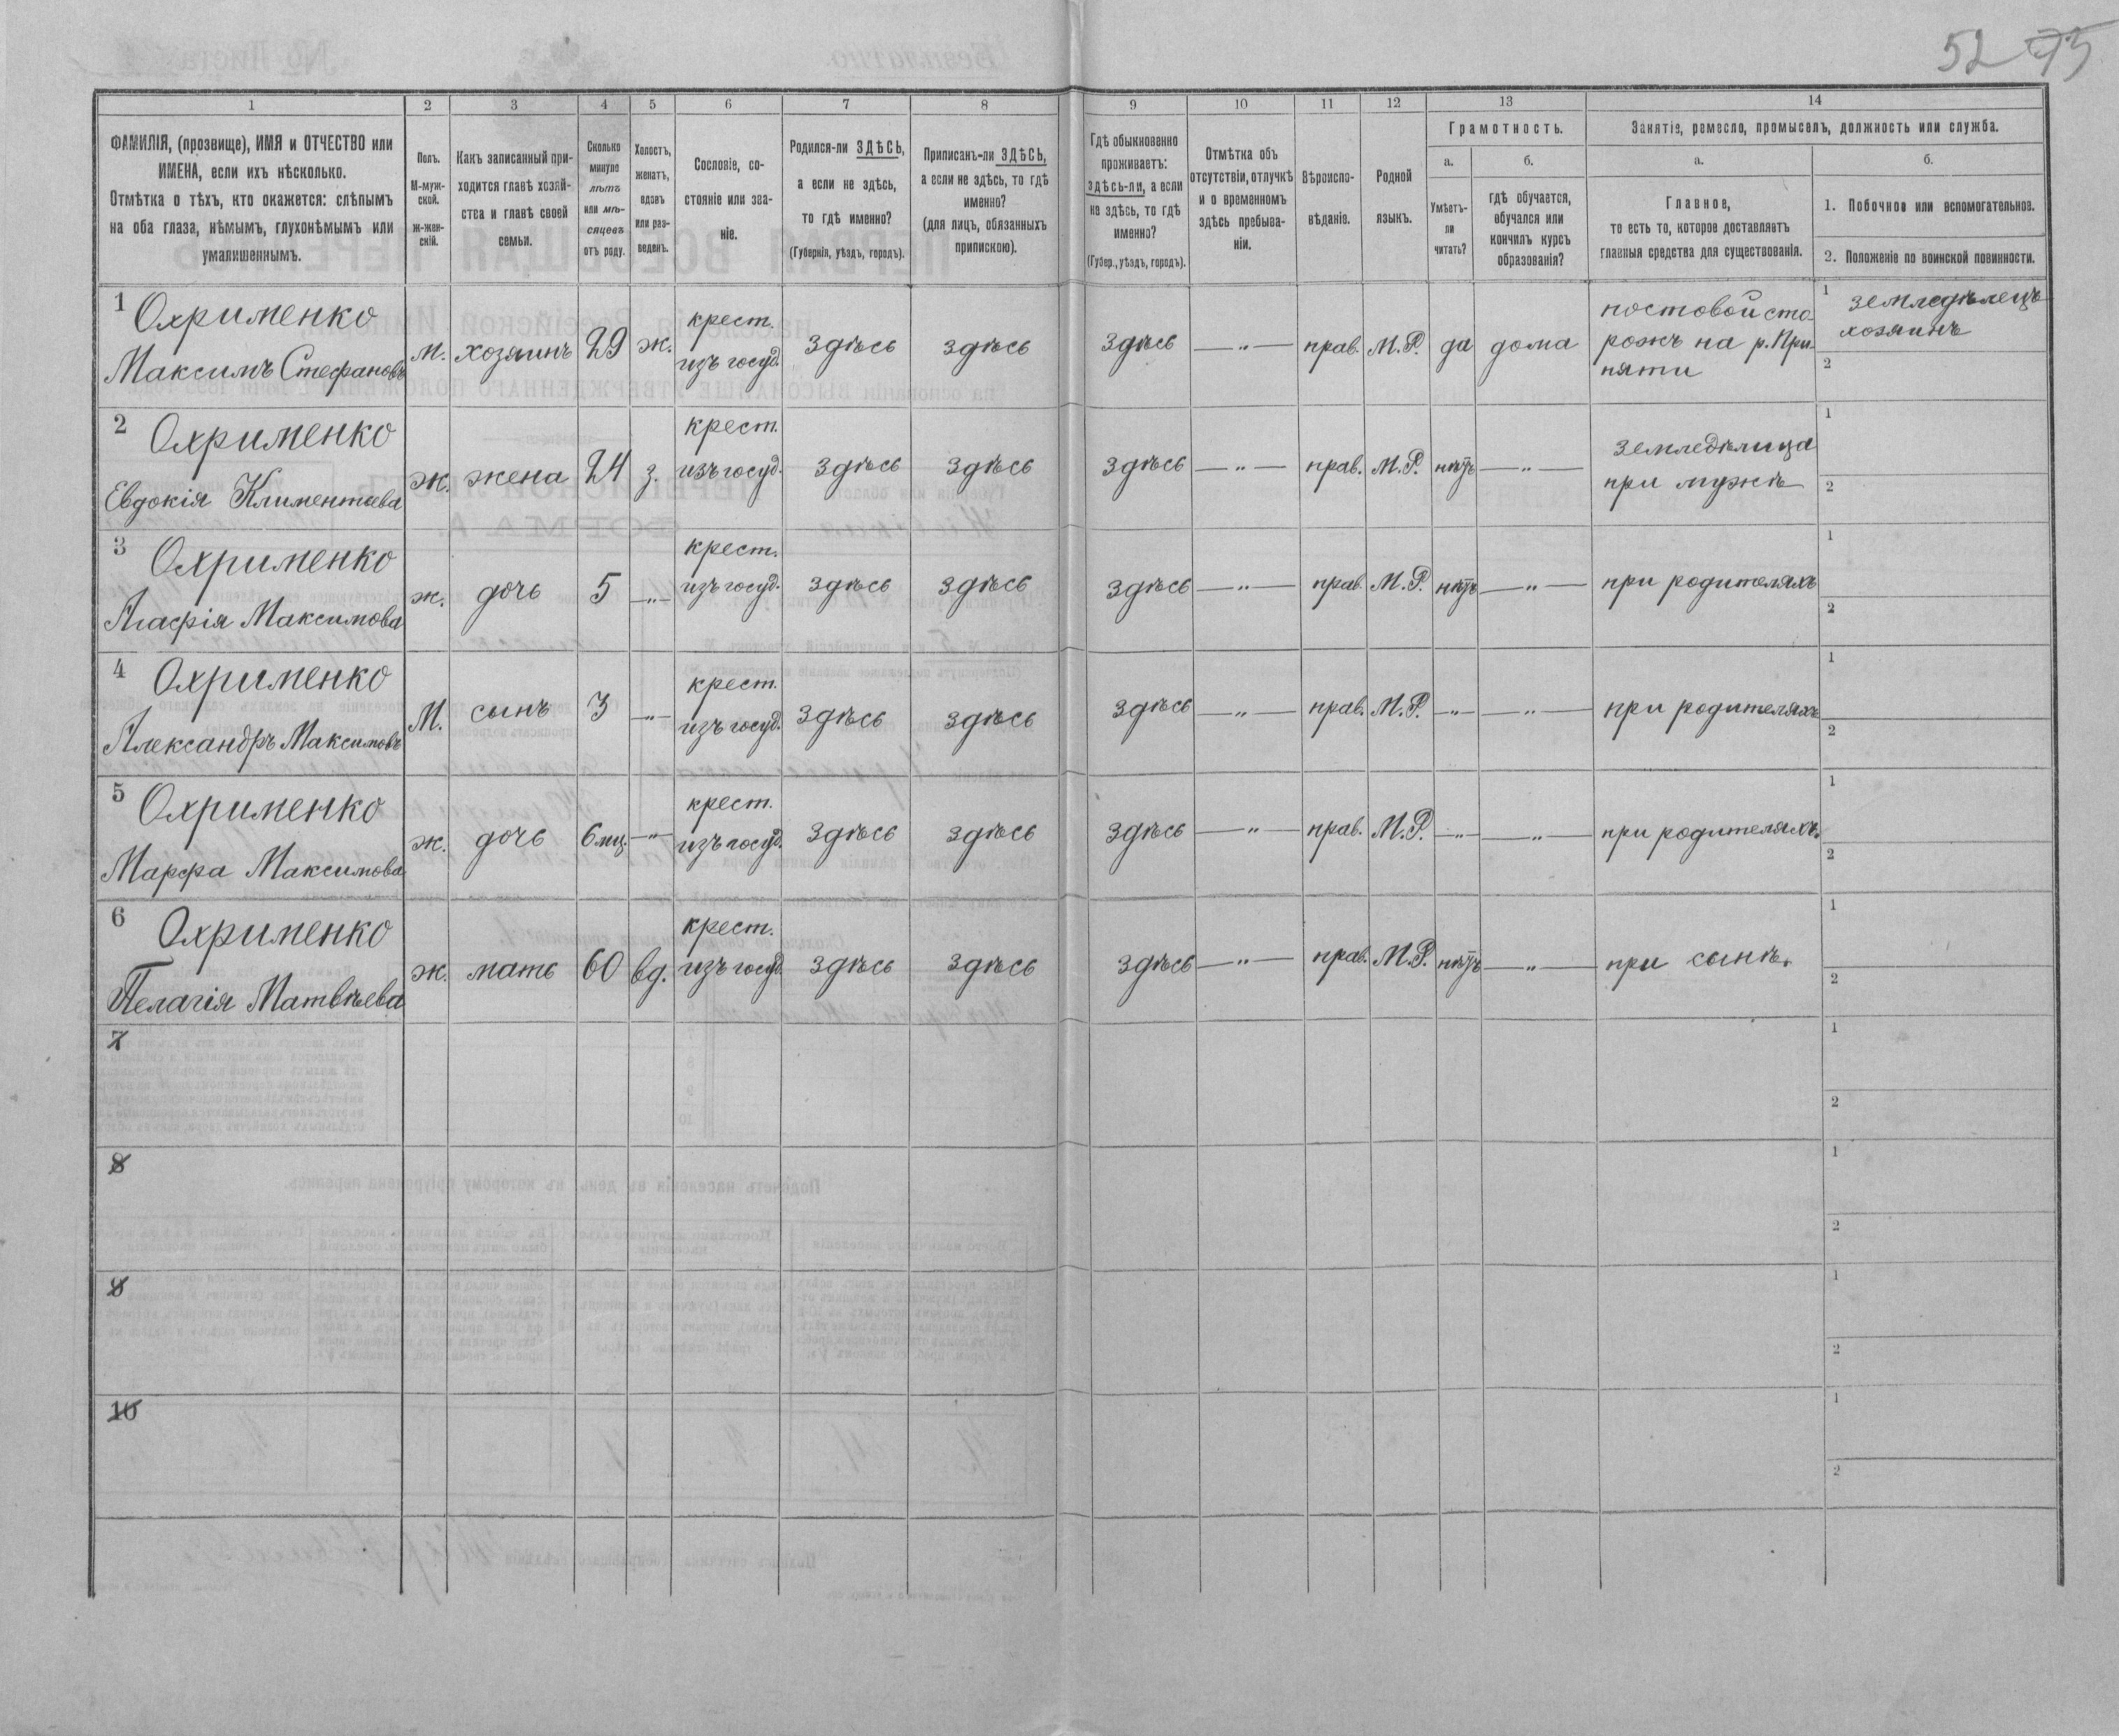 52 75
1 2 3 4 5 6 7 8 9 10 11 12 13 14
ФАМИЛІЯ, (прозвище), ИМЯ и ОТЧЕСТВО или
ИМЕНА, если ихъ нѣсколько.
Отмѣтка о тѣхъ, кто окажется: слѣпымъ
на оба глаза, нѣмымъ, глухонѣмымъ или
умалишеннымъ.
Полъ.
М-муж-
ской.
ж-жен-
скій.
Какъ записанный при-
ходится главѣ хозяй-
ства и главѣ своей
семьи.
Сколько
минуло
лѣтъ
или мѣ-
сяцевъ
отъ роду.
Холостъ,
женатъ,
вдовъ
или раз-
веденъ.
Сословіе, со-
стояніе или зва-
ніе.
Родился-ли ЗДѢСЬ,
а если не здѣсь,
то гдѣ именно?
(Губернія, уѣздъ, городъ).
Приписанъ-ли ЗДѢСЬ,
а если не здѣсь, то гдѣ
именно?
(для лицъ, обязанныхъ
припискою).
Гдѣ обыкновенно
проживаетъ:
здѣсь-ли, а если
не здѣсь, то гдѣ
именно?
(Губер., уѣздъ, городъ).
Отмѣтка объ
отсутствіи, отлучкѣ
и о временномъ
здѣсь пребыва-
ніи.
Вѣроиспо-
вѣданіе.
Родной
языкъ.
Грамотность.
а.
Умѣетъ-
ли
читать?
б.
гдѣ обучается,
обучался или
кончилъ курсъ
образованія?
Занятіе, ремесло, промыселъ, должность или служба.
а.
Главное,
то есть то, которое доставляетъ
главныя средства для существованія.
б.
1. Побочное или вспомогательное.
2. Положеніе по воинской повинности.
1 Охрименко
Максимъ Стефановъ
м. хозяинъ 29 ж.
крест.
изъ госуд.
здѣсь здѣсь здѣсь — " — прав. М.Р. да дома
постовой сто-
рожъ на р. При-
пяти
1 земледѣлецъ
хозяинъ
2
2 Охрименко
Евдокія Климентьева
ж. жена 24 з.
крест.
изъ госуд.
здѣсь здѣсь здѣсь — " — прав. М.Р. нѣтъ — " —
земледѣлица
при мужѣ
1
2
3 Охрименко
Агафія Максимова
ж. дочь 5 — " —
крест.
изъ госуд.
здѣсь здѣсь здѣсь — " — прав. М.Р. нѣтъ — " — при родителяхъ
1
2
4 Охрименко
Александръ Максимовъ
М. сынъ 3 — " —
крест.
изъ госуд.
здѣсь здѣсь здѣсь — " — прав. М.Р. — " — — " — при родителяхъ
1
2
5 Охрименко
Марфа Максимова
ж. дочь 6 мц. — " —
крест.
изъ госуд.
здѣсь здѣсь здѣсь — " — прав. М.Р. — " — — " — при родителяхъ.
1
2
6 Охрименко
Пелагія Матвѣева
ж. мать 60 вд.
крест.
изъ госуд.
здѣсь здѣсь здѣсь — " — прав. М.Р. нѣтъ — " — при сынѣ.
1
2
7
1
2
8
1
2
9
1
2
10
1
2